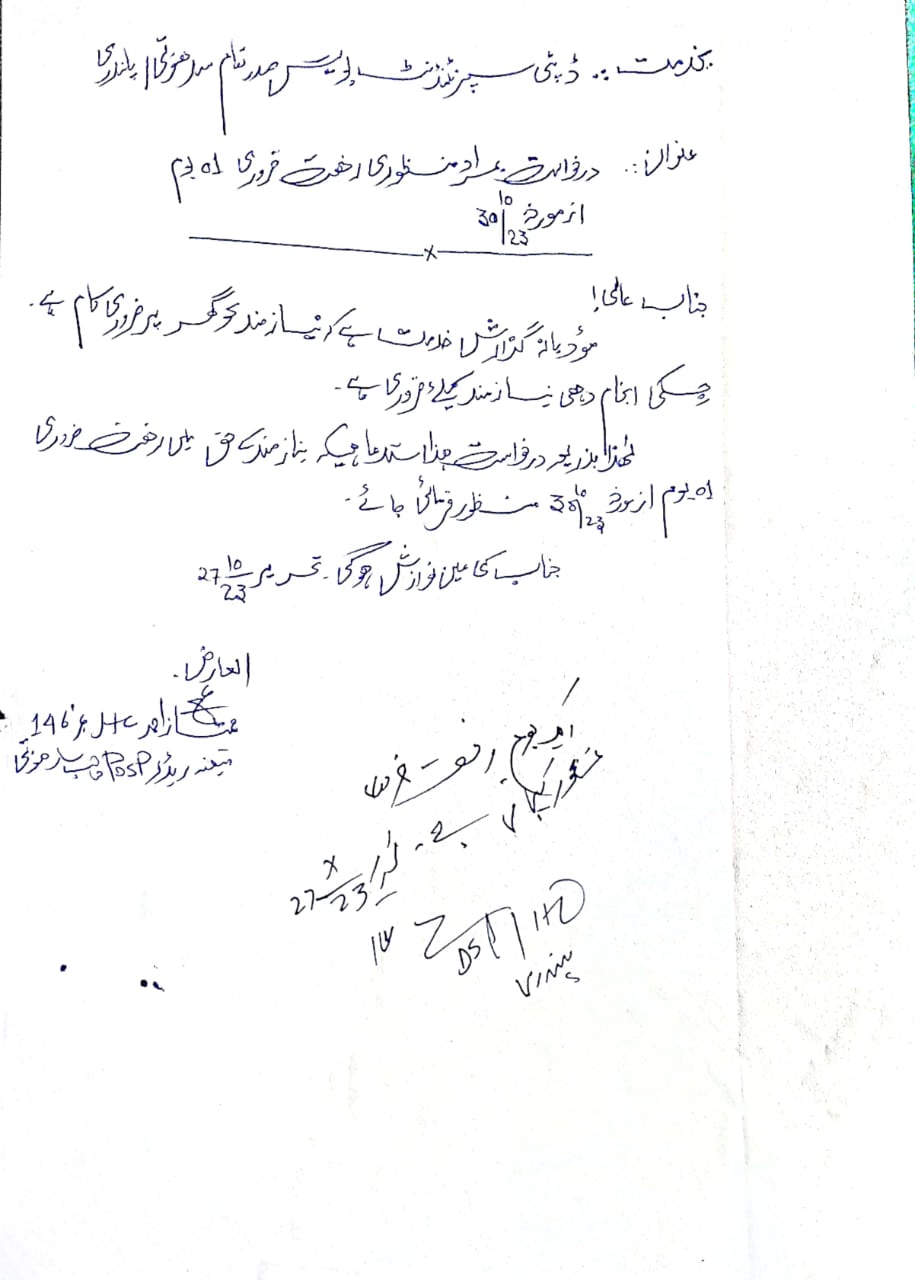 بخدمت :. ڈپٹی سپرنٹنڈنٹ پولیس صدر مقام سدھنوتی / پلندری
عنوان :. درخواست بمراد منظوری رخصت ضروری 01 یوم
از مورخہ 30/10/23
جناب عالی!
مؤدبانہ گزارش خدمت ہے کہ نیازمند کو گھر پر ضروری کام ہے۔
جسکی انجام دھی نیازمند کیلئے ضروری ہے۔
لھٰذا بذریعہ درخواست ھذا استدعا ہیکہ نیازمند کے حق میں رخصت ضروری
01 یوم از مورخہ 30/10/23 منظور فرمائی جائے۔
جناب کی عین نوازش ہوگی۔ تحریر 27/10/23
العارض۔
ممتاز احمد HC نمبر 146
متعینہ ریڈر DSP صاحب سدھنوتی
ایک یوم رخصت ضروری
منظور کی جاتی ہے۔ تحریر 27/X/23
DSP / HQ
پلندری